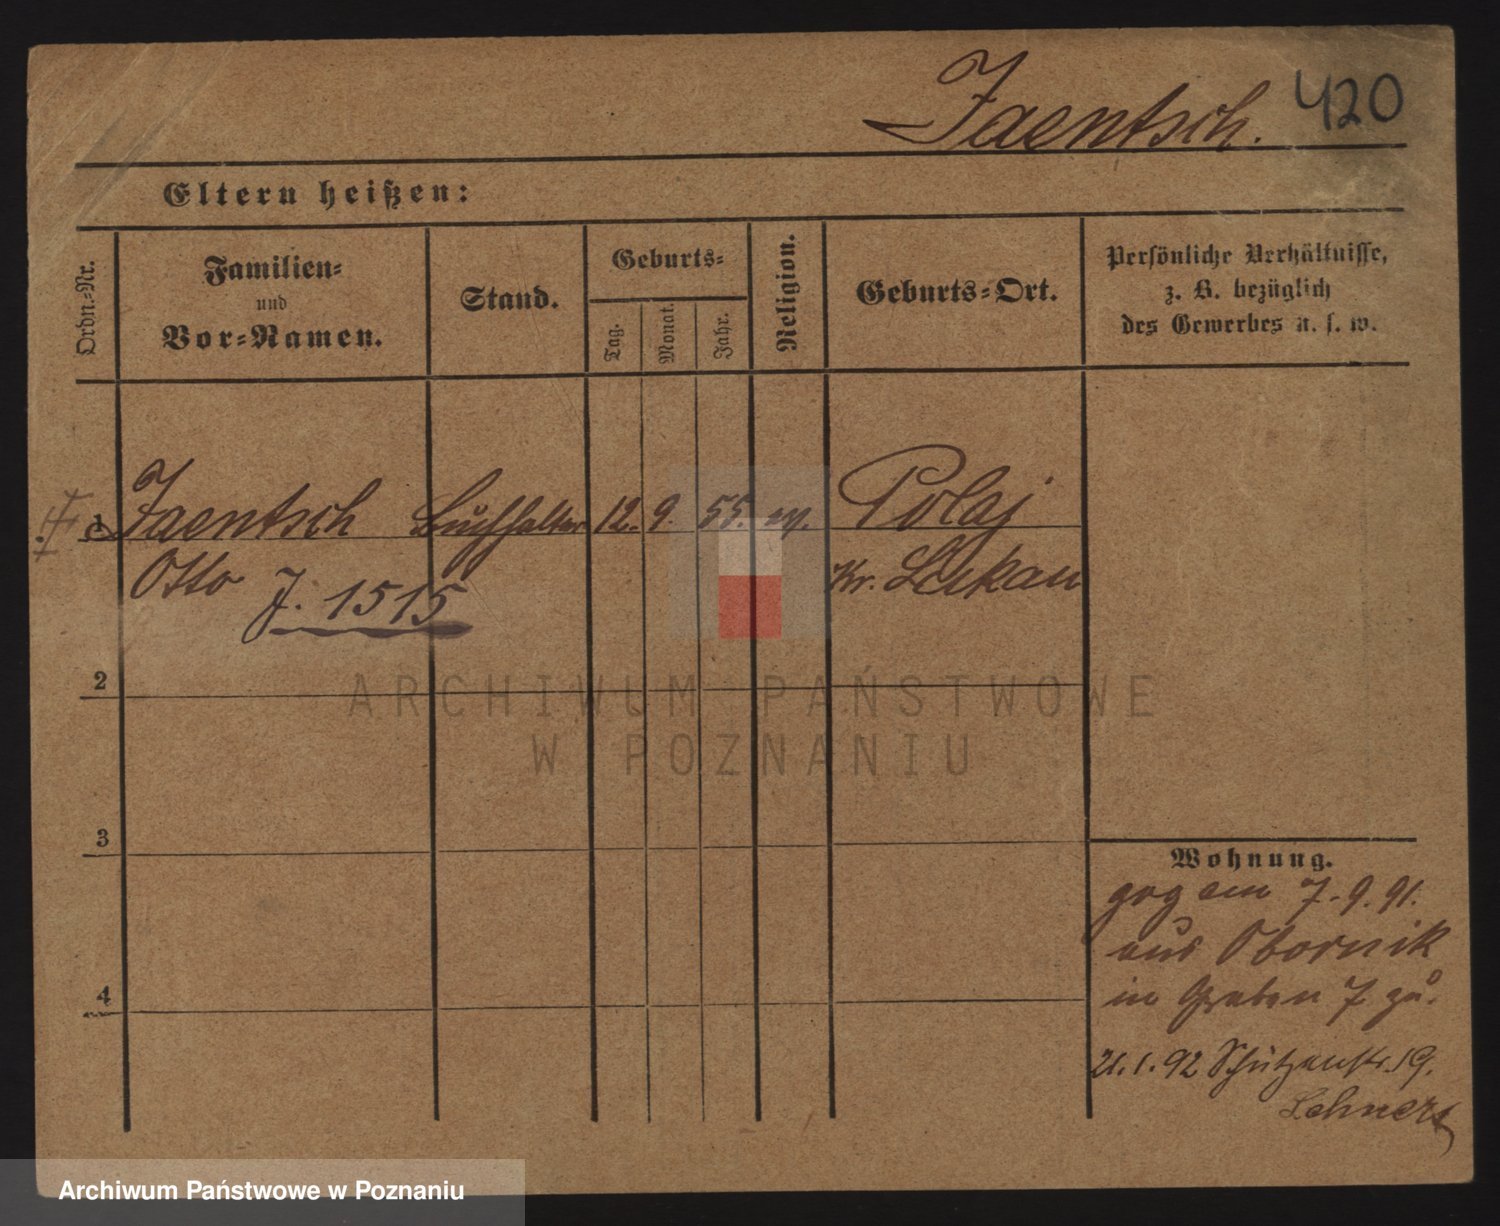 Jaentsch. 420
Eltern heißen:
Ordn.-Nr.
Familien-
und
Vor-Namen.
Stand.
Geburts-
Tag.
Monat.
Jahr.
Religion.
Geburts-Ort.
Persönliche Verhältnisse,
z. B. bezüglich
des Gewerbes u. s. w.
1 Jaentsch Buchhalter 12. 9. 55. ev. Polaj
Otto Kr. Lukau
J. 1515
2
3
4
Wohnung.
zog am 7.9.91.
aus Obornik
in Graben 7 zu.
21.1.92 Schützenstr. 19.
Lehnert
ARCHIWUM PAŃSTWOWE
W POZNANIU
Archiwum Państwowe w Poznaniu